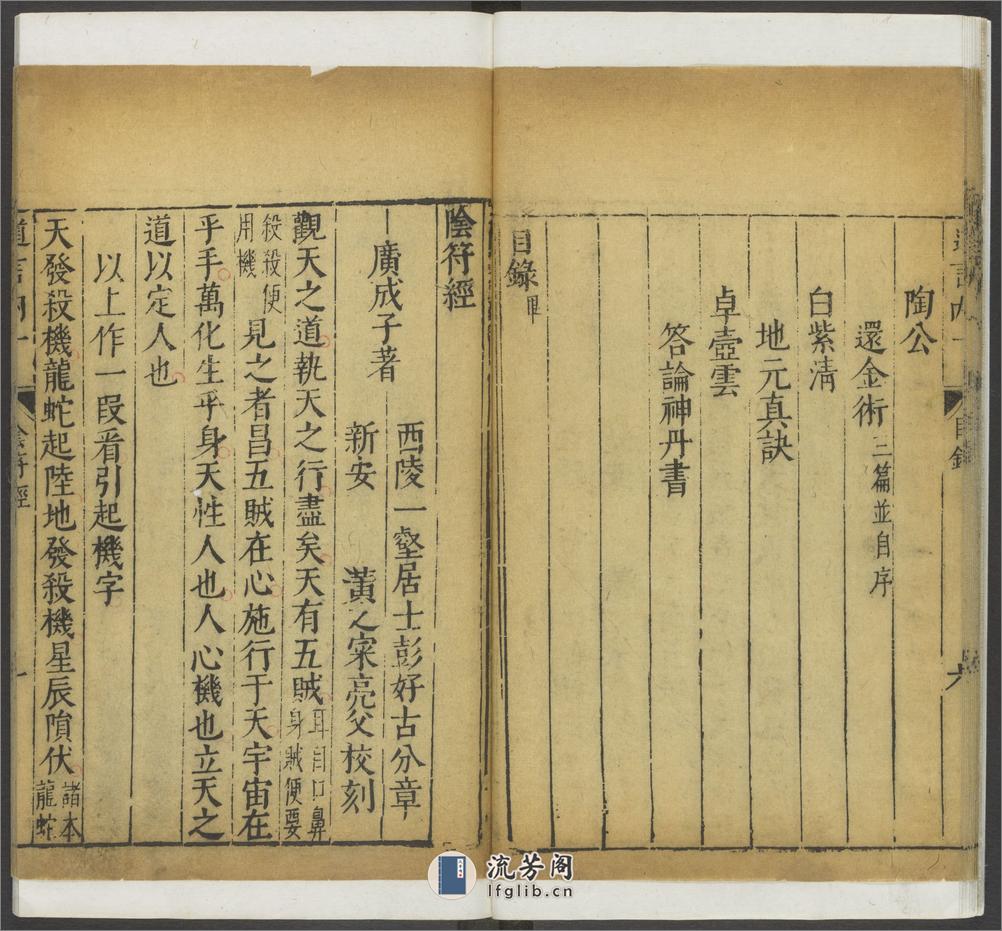 陶公
還金術 三篇並自序
白紫清
地元真訣
卓壺雲
答論神丹書
目錄畢
目錄
六
陰符經
廣成子著
西陵一壑居士彭好古分章
新安 黃之寀亮父校刻
觀天之道執天之行盡矣天有五賊耳目口鼻身賊便要
殺殺便用機見之者昌五賊在心施行于天宇宙在
乎手萬化生乎身天性人也人心機也立天之
道以定人也
以上作一段看引起機字
天發殺機龍蛇起陸地發殺機星辰隕伏諸本龍蛇
道言內一
陰符經
一
流芳阁
lfglib.cn